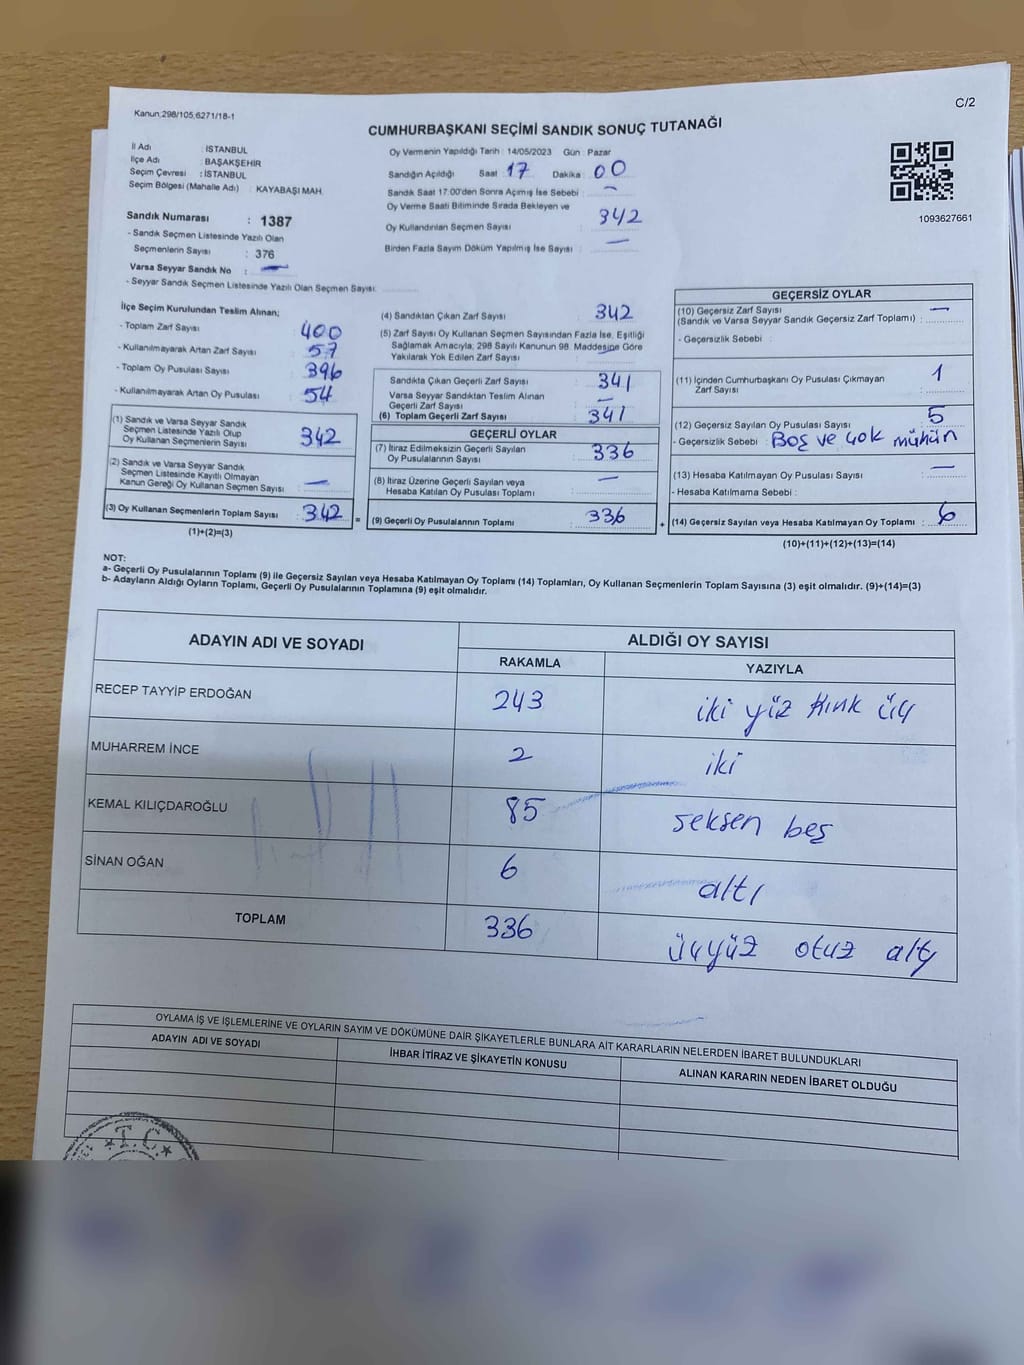 Kanun,298/105,6271/18-1
C/2
CUMHURBAŞKANI SEÇİMİ SANDIK SONUÇ TUTANAĞI
İl Adı : İSTANBUL
İlçe Adı : BAŞAKŞEHİR
Seçim Çevresi : İSTANBUL
Seçim Bölgesi (Mahalle Adı) : KAYABAŞI MAH.
Sandık Numarası : 1387
- Sandık Seçmen Listesinde Yazılı Olan
Seçmenlerin Sayısı : 376
Varsa Seyyar Sandık No : —
- Seyyar Sandık Seçmen Listesinde Yazılı Olan Seçmen Sayısı:
Oy Vermenin Yapıldığı Tarih : 14/05/2023 Gün : Pazar
Sandığın Açıldığı Saat : 17 Dakika : 00
Sandık Saat 17:00'den Sonra Açımış İse Sebebi : —
Oy Verme Saati Bitiminde Sırada Bekleyen ve
Oy Kullandırılan Seçmen Sayısı : 342
Birden Fazla Sayım Döküm Yapılmış İse Sayısı : —
1093627661
İlçe Seçim Kurulundan Teslim Alınan;
- Toplam Zarf Sayısı : 400
- Kullanılmayarak Artan Zarf Sayısı : 57
- Toplam Oy Pusulası Sayısı : 396
- Kullanılmayarak Artan Oy Pusulası : 54
(1) Sandık ve Varsa Seyyar Sandık
Seçmen Listesinde Yazılı Olup
Oy Kullanan Seçmenlerin Sayısı : 342
(2) Sandık ve Varsa Seyyar Sandık
Seçmen Listesinde Kayıtlı Olmayan
Kanun Gereği Oy Kullanan Seçmen Sayısı : —
(3) Oy Kullanan Seçmenlerin Toplam Sayısı : 342 =
(1)+(2)=(3)
(4) Sandıktan Çıkan Zarf Sayısı : 342
(5) Zarf Sayısı Oy Kullanan Seçmen Sayısından Fazla İse, Eşitliği
Sağlamak Amacıyla; 298 Sayılı Kanunun 98. Maddesine Göre
Yakılarak Yok Edilen Zarf Sayısı : —
Sandıkta Çıkan Geçerli Zarf Sayısı : 341
Varsa Seyyar Sandıktan Teslim Alınan
Geçerli Zarf Sayısı : —
(6) Toplam Geçerli Zarf Sayısı : 341
GEÇERLİ OYLAR
(7) İtiraz Edilmeksizin Geçerli Sayılan
Oy Pusulalarının Sayısı : 336
(8) İtiraz Üzerine Geçerli Sayılan veya
Hesaba Katılan Oy Pusulası Toplamı : —
(9) Geçerli Oy Pusulalarının Toplamı : 336 +
GEÇERSİZ OYLAR
(10) Geçersiz Zarf Sayısı
(Sandık ve Varsa Seyyar Sandık Geçersiz Zarf Toplamı) : —
- Geçersizlik Sebebi :
(11) İçinden Cumhurbaşkanı Oy Pusulası Çıkmayan
Zarf Sayısı : 1
(12) Geçersiz Sayılan Oy Pusulası Sayısı : 5
- Geçersizlik Sebebi : Boş ve çok mühün
(13) Hesaba Katılmayan Oy Pusulası Sayısı : —
- Hesaba Katılmama Sebebi :
(14) Geçersiz Sayılan veya Hesaba Katılmayan Oy Toplamı : 6
(10)+(11)+(12)+(13)=(14)
NOT:
a- Geçerli Oy Pusulalarının Toplamı (9) ile Geçersiz Sayılan veya Hesaba Katılmayan Oy Toplamı (14) Toplamları, Oy Kullanan Seçmenlerin Toplam Sayısına (3) eşit olmalıdır. (9)+(14)=(3)
b- Adayların Aldığı Oyların Toplamı, Geçerli Oy Pusulalarının Toplamına (9) eşit olmalıdır.
ADAYIN ADI VE SOYADI
ALDIĞI OY SAYISI
RAKAMLA YAZIYLA
RECEP TAYYİP ERDOĞAN 243 iki yüz kırk üç
MUHARREM İNCE 2 iki
KEMAL KILIÇDAROĞLU 85 seksen beş
SİNAN OĞAN 6 altı
TOPLAM 336 üçyüz otuz altı
OYLAMA İŞ VE İŞLEMLERİNE VE OYLARIN SAYIM VE DÖKÜMÜNE DAİR ŞİKAYETLERLE BUNLARA AİT KARARLARIN NELERDEN İBARET BULUNDUKLARI
ADAYIN ADI VE SOYADI
İHBAR İTİRAZ VE ŞİKAYETİN KONUSU
ALINAN KARARIN NEDEN İBARET OLDUĞU
T.C.